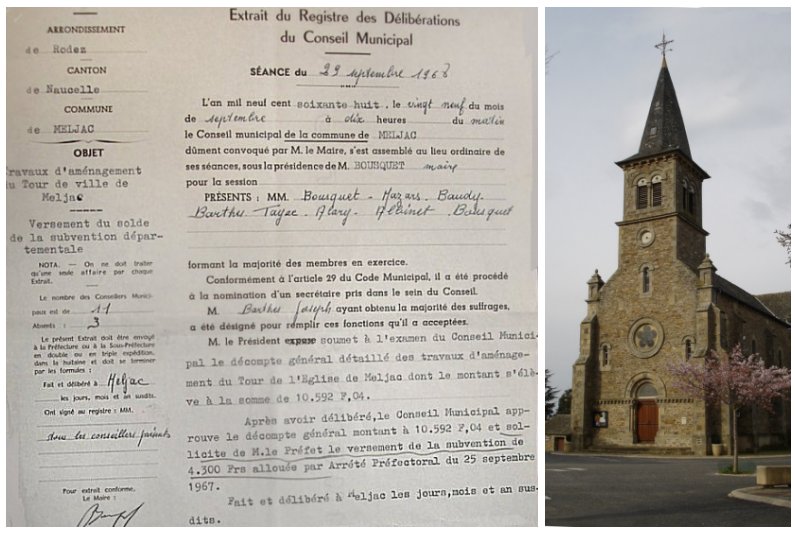 ARRONDISSEMENT
de Rodez
CANTON
de Naucelle
COMMUNE
de MELJAC
OBJET
ravaux d'aménagement
u Tour de ville de
Meljac
Versement du solde
de la subvention dépar-
tementale
NOTA. — On ne doit traiter
qu'une seule affaire par chaque
Extrait.
Le nombre des Conseillers Munici-
paux est de 11
Absents : 3
Le présent Extrait doit être envoyé
à la Préfecture ou à la Sous-Préfecture
en double ou en triple expédition,
dans la huitaine et doit se terminer
par les formules :
Fait et délibéré à Meljac
les jours, mois et an susdits.
Ont signé au registre : MM.
tous les conseillers présents
Pour extrait conforme,
Le Maire :
Extrait du Registre des Délibérations
du Conseil Municipal
SÉANCE du 29 septembre 1968
L'an mil neuf cent soixante huit . le vingt neuf du mois
de septembre à dix heures du matin
le Conseil municipal de la commune de MELJAC
dûment convoqué par M. le Maire, s'est assemblé au lieu ordinaire de
ses séances, sous la présidence de M. BOUSQUET maire
pour la session
PRÉSENTS : MM. Bousquet - Mazars. Baudy.
Barthes Tayac. Alary. Albinet. Bousquet
formant la majorité des membres en exercice.
Conformément à l'article 29 du Code Municipal, il a été procédé
à la nomination d'un secrétaire pris dans le sein du Conseil.
M. Barthes Joseph ayant obtenu la majorité des suffrages,
a été désigné pour remplir ces fonctions qu'il a acceptées.
M. le Président expose soumet à l'examen du Conseil Munici-
pal le décompte général détaillé des travaux d'aménage-
ment du Tour de l'Eglise de Meljac dont le montant s'élè-
ve à la somme de 10.592 F,04.
Après avoir délibéré,le Conseil Municipal app-
rouve le décompte général montant à 10.592 F,04 et sol-
licite de M.le Préfet le versement de la subvention de
4.300 Frs allouée par Arrêté Préfectoral du 25 septembre
1967.
Fait et délibéré à Meljac les jours,mois et an sus-
dits.